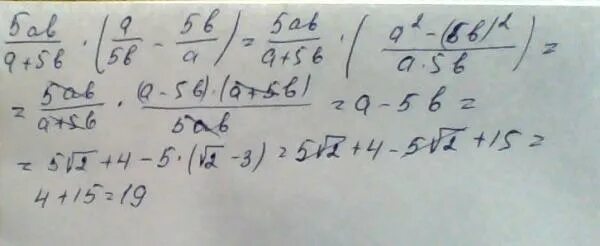 5ab/(a+5b) · (a/5b - 5b/a) = 5ab/(a+5b) · ((a² - (5b)²)/(a·5b)) =
= 5ab/(a+5b) · ((a-5b)·(a+5b))/5ab = a - 5b =
= 5√2 + 4 - 5·(√2 - 3) = 5√2 + 4 - 5√2 + 15 =
4 + 15 = 19